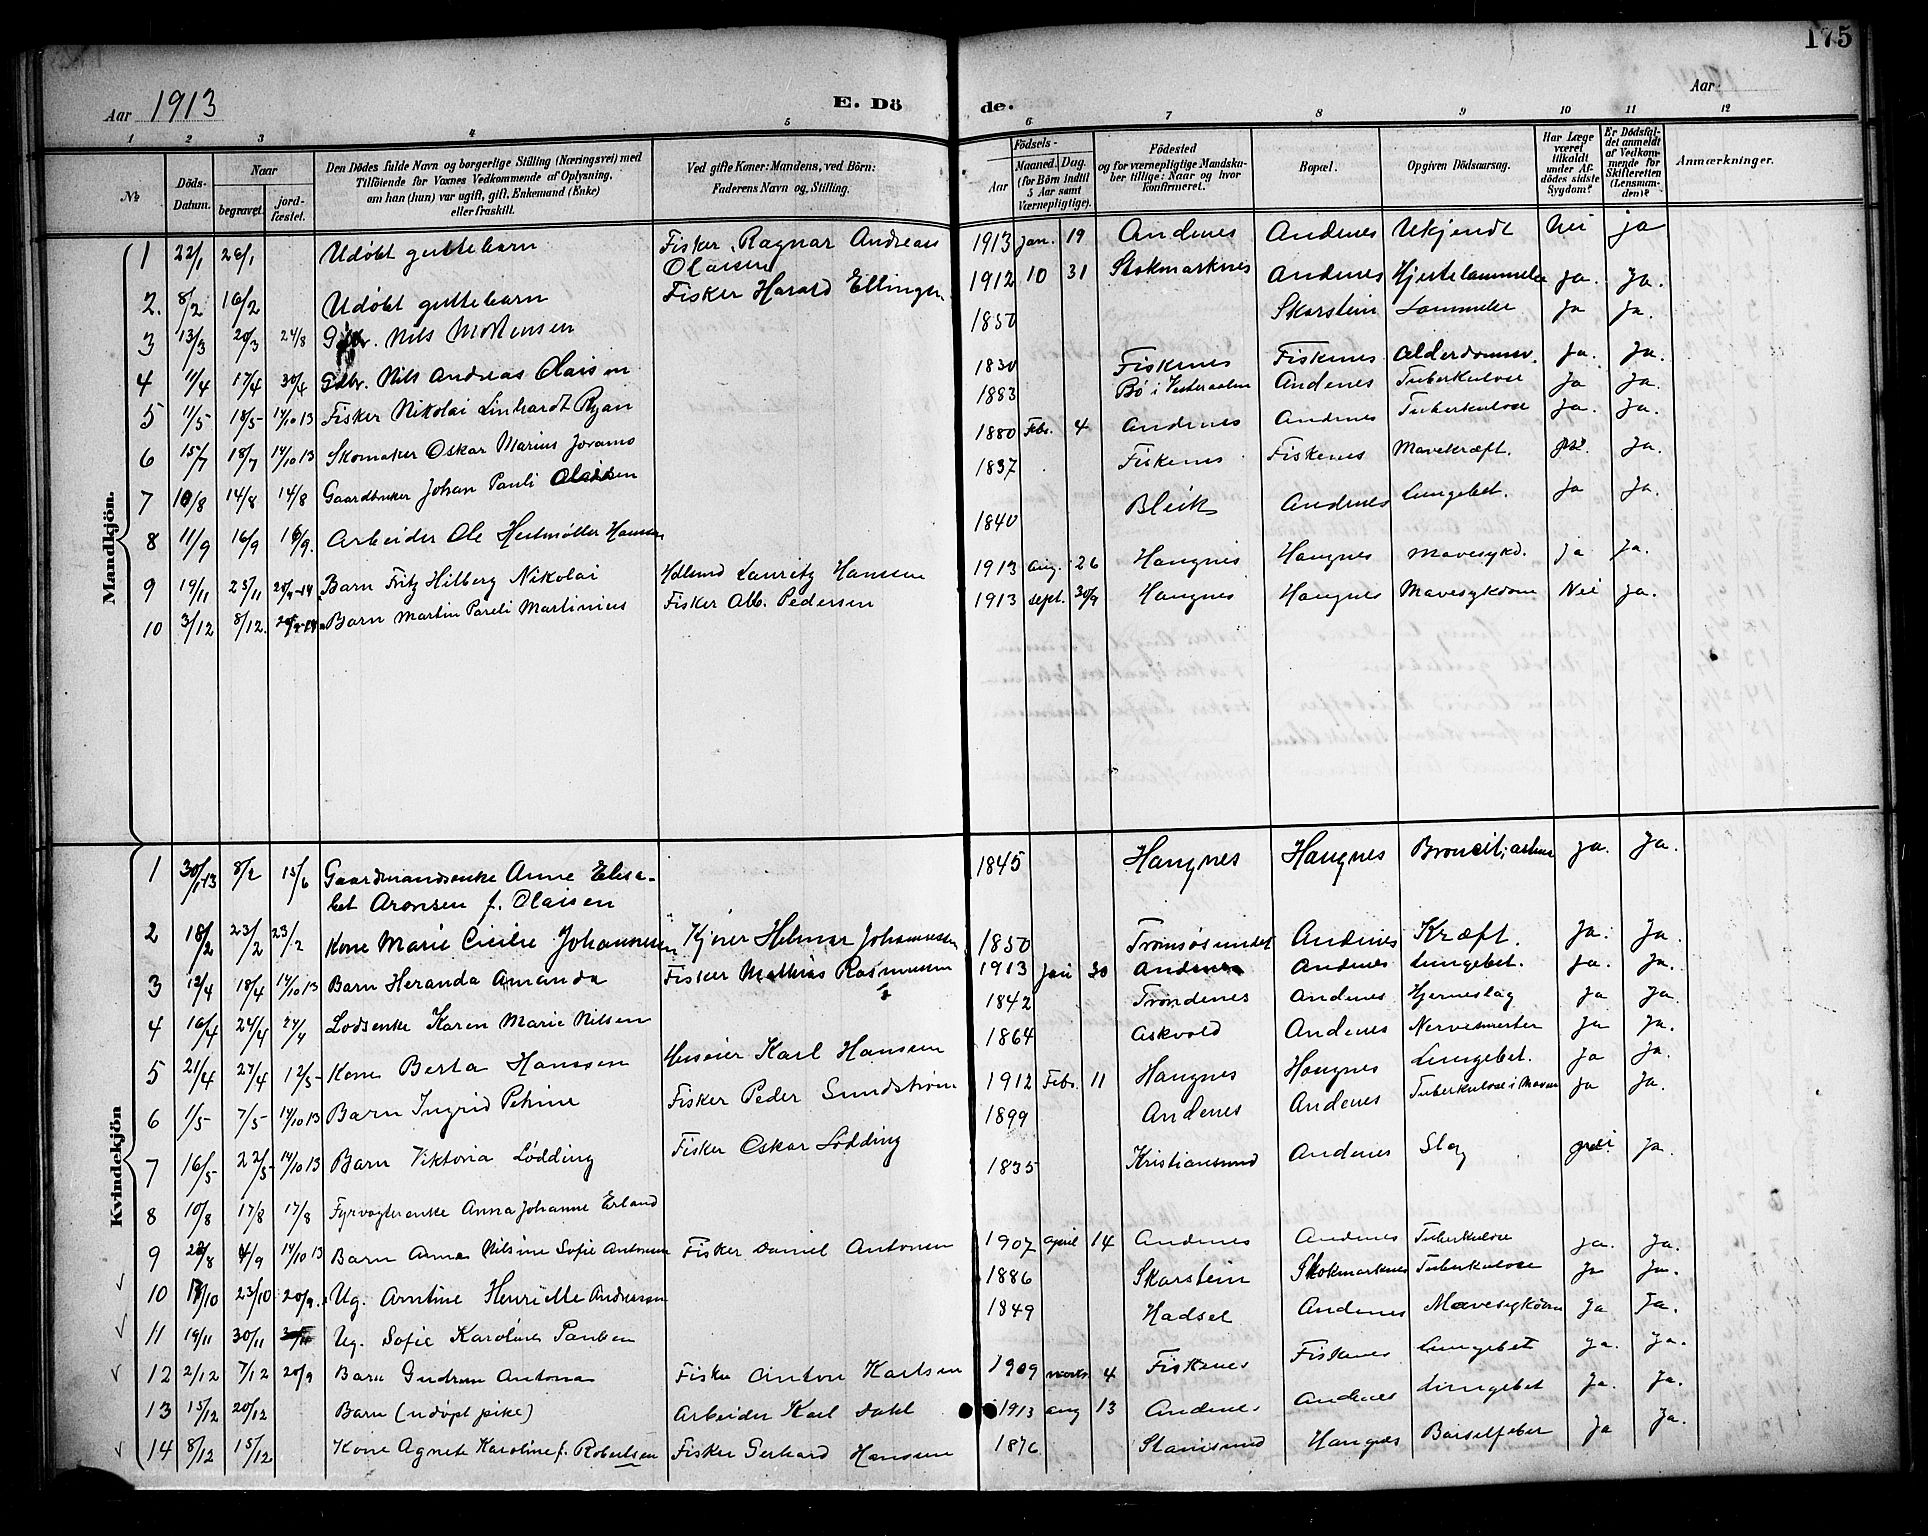 175
Aar 1913 E. Dö de. Aar
1 2 3 4 5 6 7 8 9 10 11 12
№ Döds-Datum. Naar begravet. jord-fæstet. Den Dödes fulde Navn og borgerlige Stilling (Næringsvei) med Tilföiende for Voxnes Vedkommende af Oplysning, om han (hun) var ugift, gift, Enkemand (Enke) eller fraskilt. Ved gifte Koner: Mandens, ved Börn: Faderens Navn og Stilling. Födsels- Aar Maaned. Dag. (for Börn indtil 5 Aar samt Værnepligtige). Födested og for værnepligtige Mandskaber tillige: Naar og hvor konfirmeret. Bopæl. Opgiven Dödsaarsag. Har Læge været tilkaldt under Afdödes sidste Sygdom? Er Dödsfaldet anmeldt af Vedkommende for Skifteretten (Lensmanden)? Anmærkninger.
Mandkjön.
1 22/1 26/1 Udöbt guttebarn Fisker Ragnar Andreas Olaisen 1913 Jan. 19 Andenes Andenes Ukjendt Nei ja
2. 8/2 16/2 Udöbt guttebarn Fisker Harald Ellingsen 1912 10 31 Stokmarknes Andenes Hjertelammelse ja. ja.
3 13/3 20/3 24/8 Nils Mortensen 1850 Skarstein Lammelse ja ja.
4 11/4 17/4 30/4 Gdbr. Nils Andreas Olaisen 1830 Fiskenes Fiskenes Alderdomssv. ja. ja.
5 11/5 18/5 14/10 13 Fisker Nikolai Linhardt Ryan 1883 Bö i Vesteraalen Andenes Tuberkulose ja ja.
6 15/7 18/7 14/10 13 Skomaker Oskar Marius Jorams 1880 Febr. 4 Andenes Andenes Tuberkulose ja. ja.
7 10/8 14/8 14/8 Gaardbruker Johan Pauli Olaisen 1837 Fiskenes Fiskenes Mavekræft. ja.
8 11/9 16/9 16/9. Arbeider Ole Heitmøller Hansen 1840 Bleik Andenes Lungebet. ja ja.
9 19/11 23/11 20/9-14 Barn Fritz Hilberg Nikolai Lauritz Hanssen 1913 aug. 26 Haugnes Haugnes Mavesykd. ja ja.
10 3/12 8/12. Barn Martin Pareli Martinius Fisker Alb. Pedersen 1913 sept. 30/9 Haugnes Haugnes Mavesykdom Nei ja.
Kvindekjön
1 30/1 13 8/2 15/6 Gaardmandsenke Anne Elisa-
bet Aronsen f. Olaisen 1845 Haugnes Haugnes ja. ja.
2 18/2 23/2 23/2 Kone Marie Cicilie Johannesen Helmer Johannessen 1850 Tromsösundet Andenes Kræft. ja. ja.
3 12/4 18/4 14/10 13 Barn Heranda Amanda Fisker Mathias Rasmussen 1913 Jan 30 Andenes Andenes Lungebet. ja. ja.
4 16/4 24/4 24/4 Lodsenke Karen Marie Nilsen 1842 Trondenes Andenes Hjerneslag ja ja.
5 21/4 27/4 12/5 Kone Berta Hanssen Huseier Karl Hanssen 1864 Askvold Andenes Nervesmerter ja ja.
6 1/5 7/5 14/10 13 Barn Ingrid Petrine Fisker Peder Sundström 1912 Febr. 11 Haugnes Haugnes Lungebet. ja ja.
7 16/5 22/5 14/10 13 Barn Viktoria Lødding Fisker Oskar Lødding 1899 Andenes Andenes Tuberkulose i Maven ja ja.
8 10/8 17/8 17/8 Fyrvogterenke Anna Johanne Erland 1835 Kristiansund Andenes Slag ja.
9 28/8 4/9 14/10 13 Barn Anna Nilsine Sofie Antonsen Fisker Daniel Antonsen 1907 april 14 Andenes Andenes Tuberkulose ja. ja.
10 18/10 23/10 20/9. Ug. Arntine Henriette Andreassen 1886 Skarstein Stokmarknes Tuberkulose ja ja.
11 19/11 30/11 Ug. Sofie Karoline Paulsen 1849 Hadsel Andenes Mavesykdom ja ja.
12 2/12 7/12 20/9 Barn Gudrun Antona Fisker Anton Karlsen 1909 marts 4 Fiskenes Fiskenes Lungebet ja. ja.
13 15/12 20/12 Barn (udöpt pike) Arbeider Karl Dahl 1913 aug 13 Andenes Andenes Lungebet ja. ja.
14 8/12 15/12 Kone Agnete Karoline f. Robertsen Fisker Gerhard Hanssen 1876 Stamsund Haugnes Barselfeber ja ja.